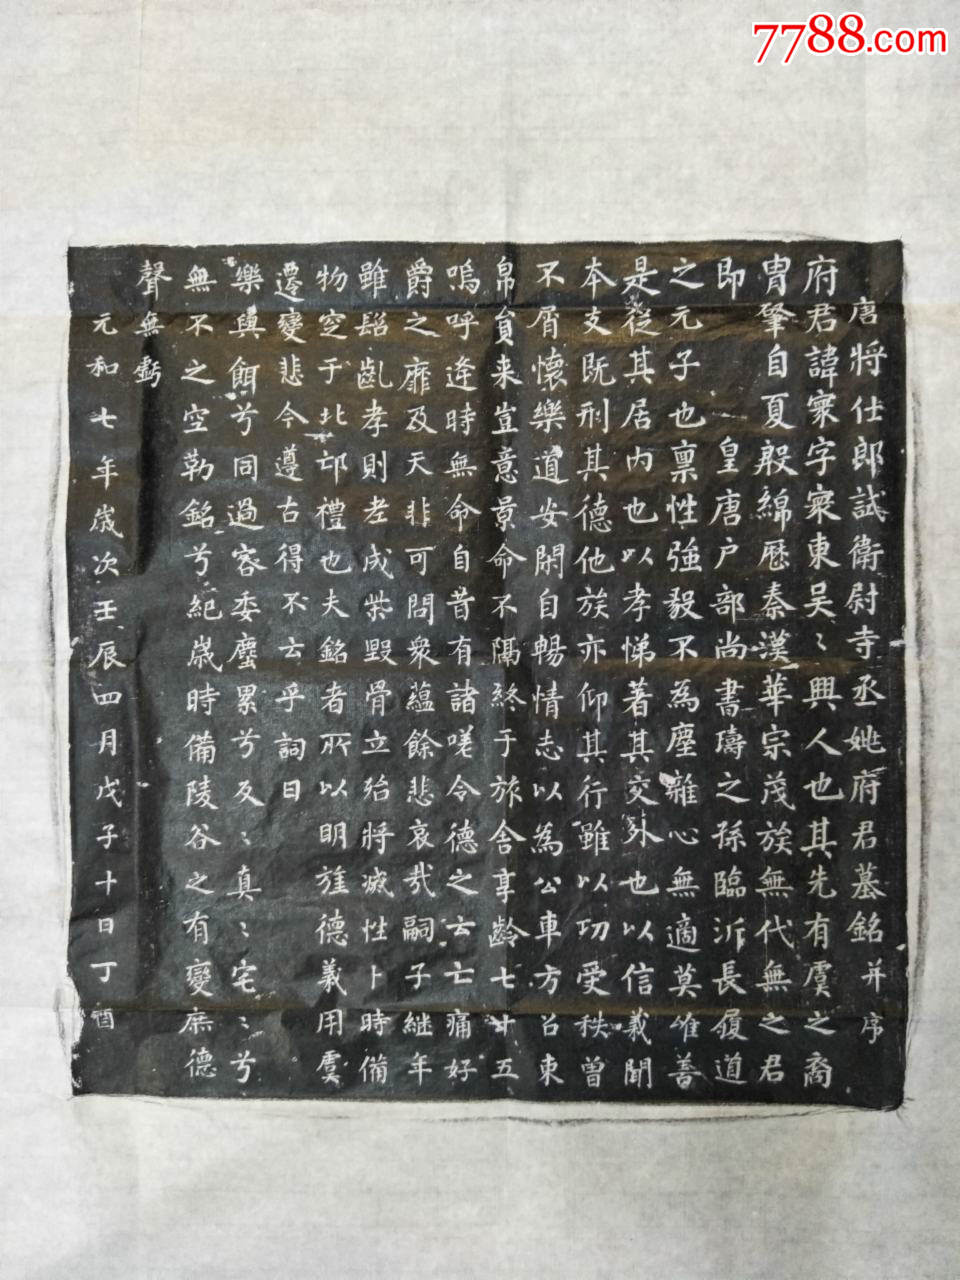 7788.com
唐將仕郎試衛尉寺丞姚府君墓銘并序
府君諱寀字寀東吴〻興人也其先有虞之裔
胄肇自夏殷綿歷秦漢華宗茂族無代無之君
即皇唐户部尚書璹之孫臨沂長履道
之元子也禀性強毅不為塵雜心無適莫唯善
是從其居内也以孝悌著其交外也以信義聞
本支既刑其德他族亦仰其行雖以功受秩曾
不屑懷樂道安閑自暢情志以為公車方召東
帛賁来豈意景命不隔終于旅舍享齡七十五
嗚呼逢時無命自昔有諸嗟令德之云亡痛好
爵之靡及天非可問衆蘊餘悲哀哉嗣子継年
雖齠齓孝則老成柴毀骨立殆將滅性卜時備
物窆于北邙禮也夫銘者所以明旌德義用虞
遷變悲今遵古得不云乎詞曰
樂與餌兮同過容委塵累兮反〻真〻宅〻兮
無不之空勒銘兮紀歲時備陵谷之有變庶德
聲無虧
元和七年歲次壬辰四月戊子十日丁酉